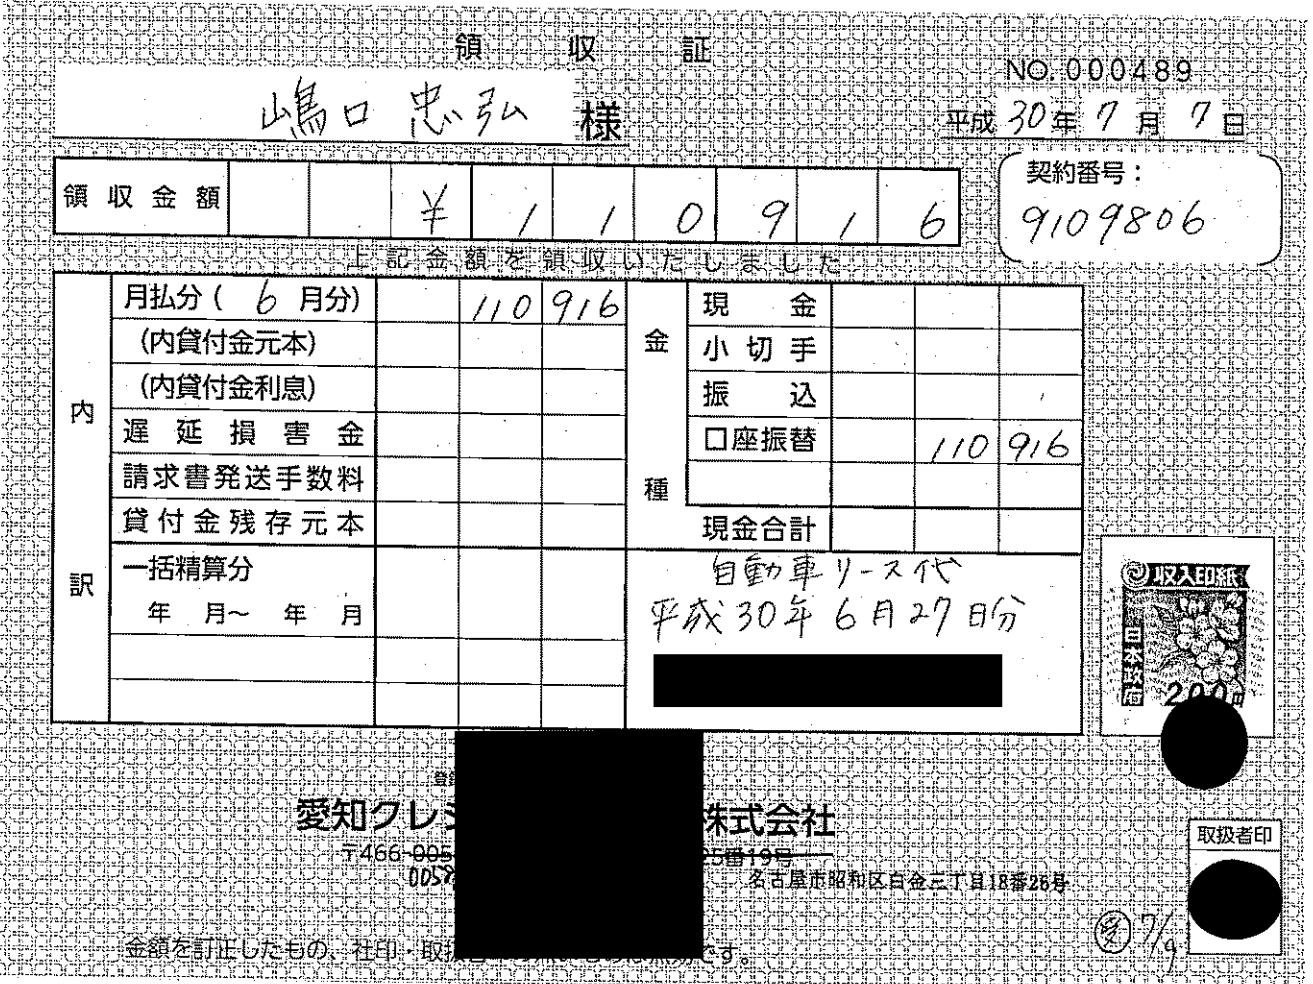 領収証
NO. 000489
嶋口 忠弘 様
平成 30 年 7 月 7 日
領収金額 ¥ 1 1 0 9 1 6
契約番号：
9109806
上記金額を領収いたしました
内訳
月払分( 6 月分) 110 916
(内貸付金元本)
(内貸付金利息)
遅延損害金
請求書発送手数料
貸付金残存元本
一括精算分
年 月〜 年 月
金種
現金
小切手
振込
口座振替 110 916
現金合計
自動車リース代
平成30年6月27日分
収入印紙
日本政府
200円
愛知クレジ
株式会社
〒466-005
25番19号
005
名古屋市昭和区白金三丁目18番26号
取扱者印
7/9
金額を訂正したもの、社印・取扱
です。